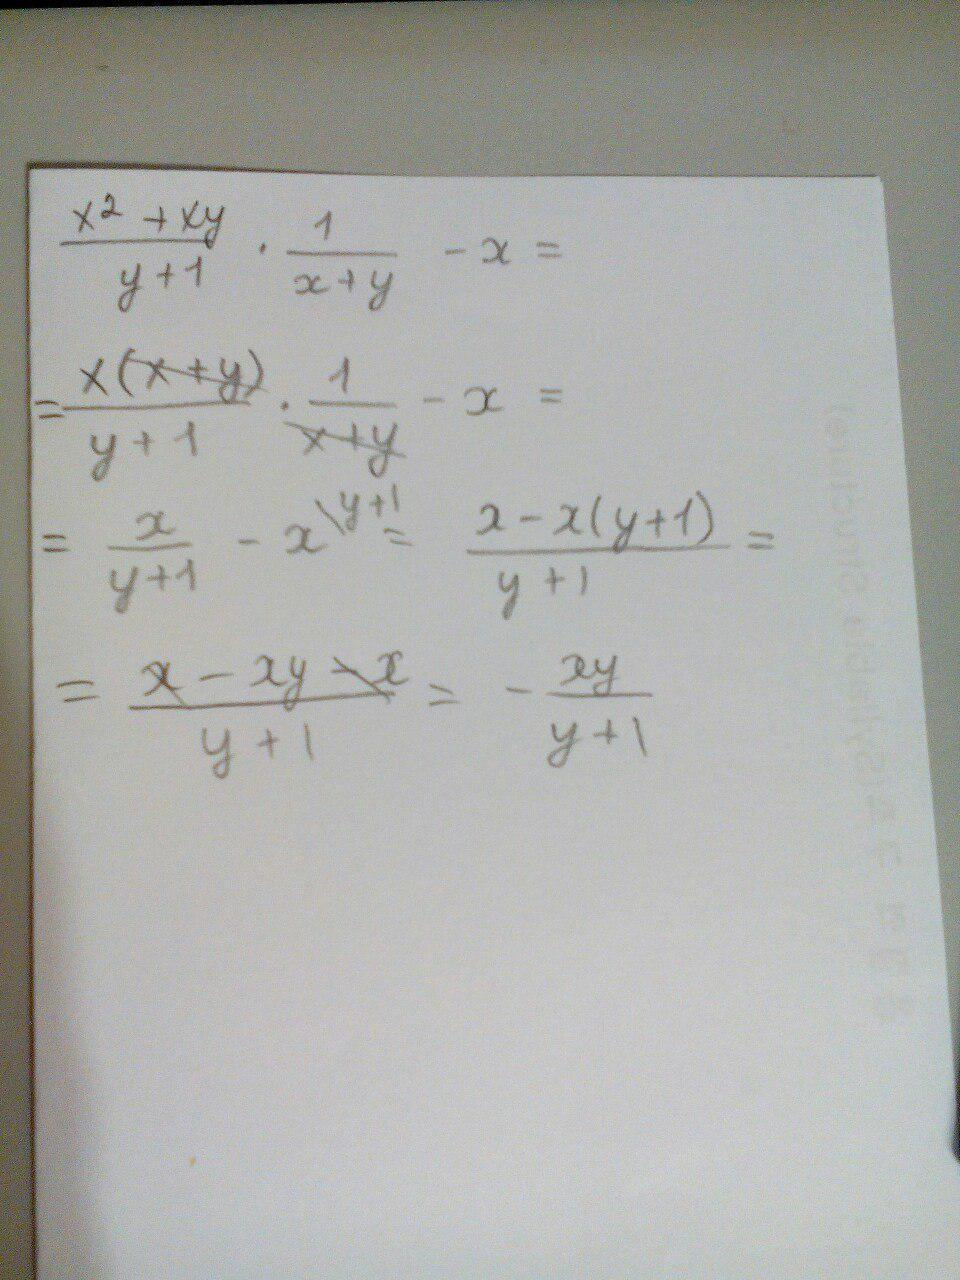 x² + xy / y + 1 · 1 / x + y - x =
= x(x + y) / y + 1 · 1 / x + y - x =
= x / y + 1 - x \ y + 1 = x - x(y + 1) / y + 1 =
= x - xy - x / y + 1 = - xy / y + 1